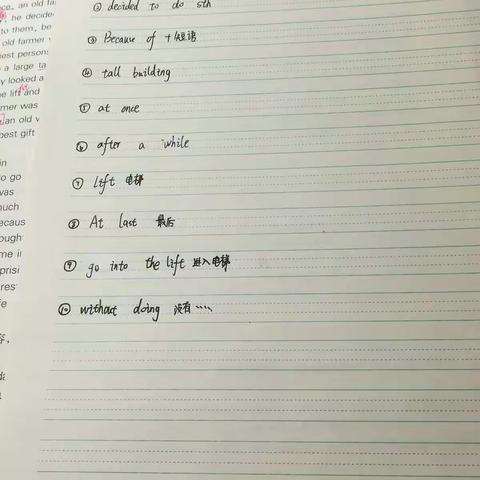 ce, an old fa
② decided to do sth
, he decide
to them, be
③ Because of +短语
old farmer
est person
a large ta
④ tall building
y looked a
e lift and
⑤ at once
mer was
an old
best gift
⑥ after a while
in
to go
⑦ lift 电梯
was
much
⑧ At last 最后
ecaus
ough
me i
⑨ go into the lift 进入电梯
prisi
res
fe
⑩ without doing 没有……